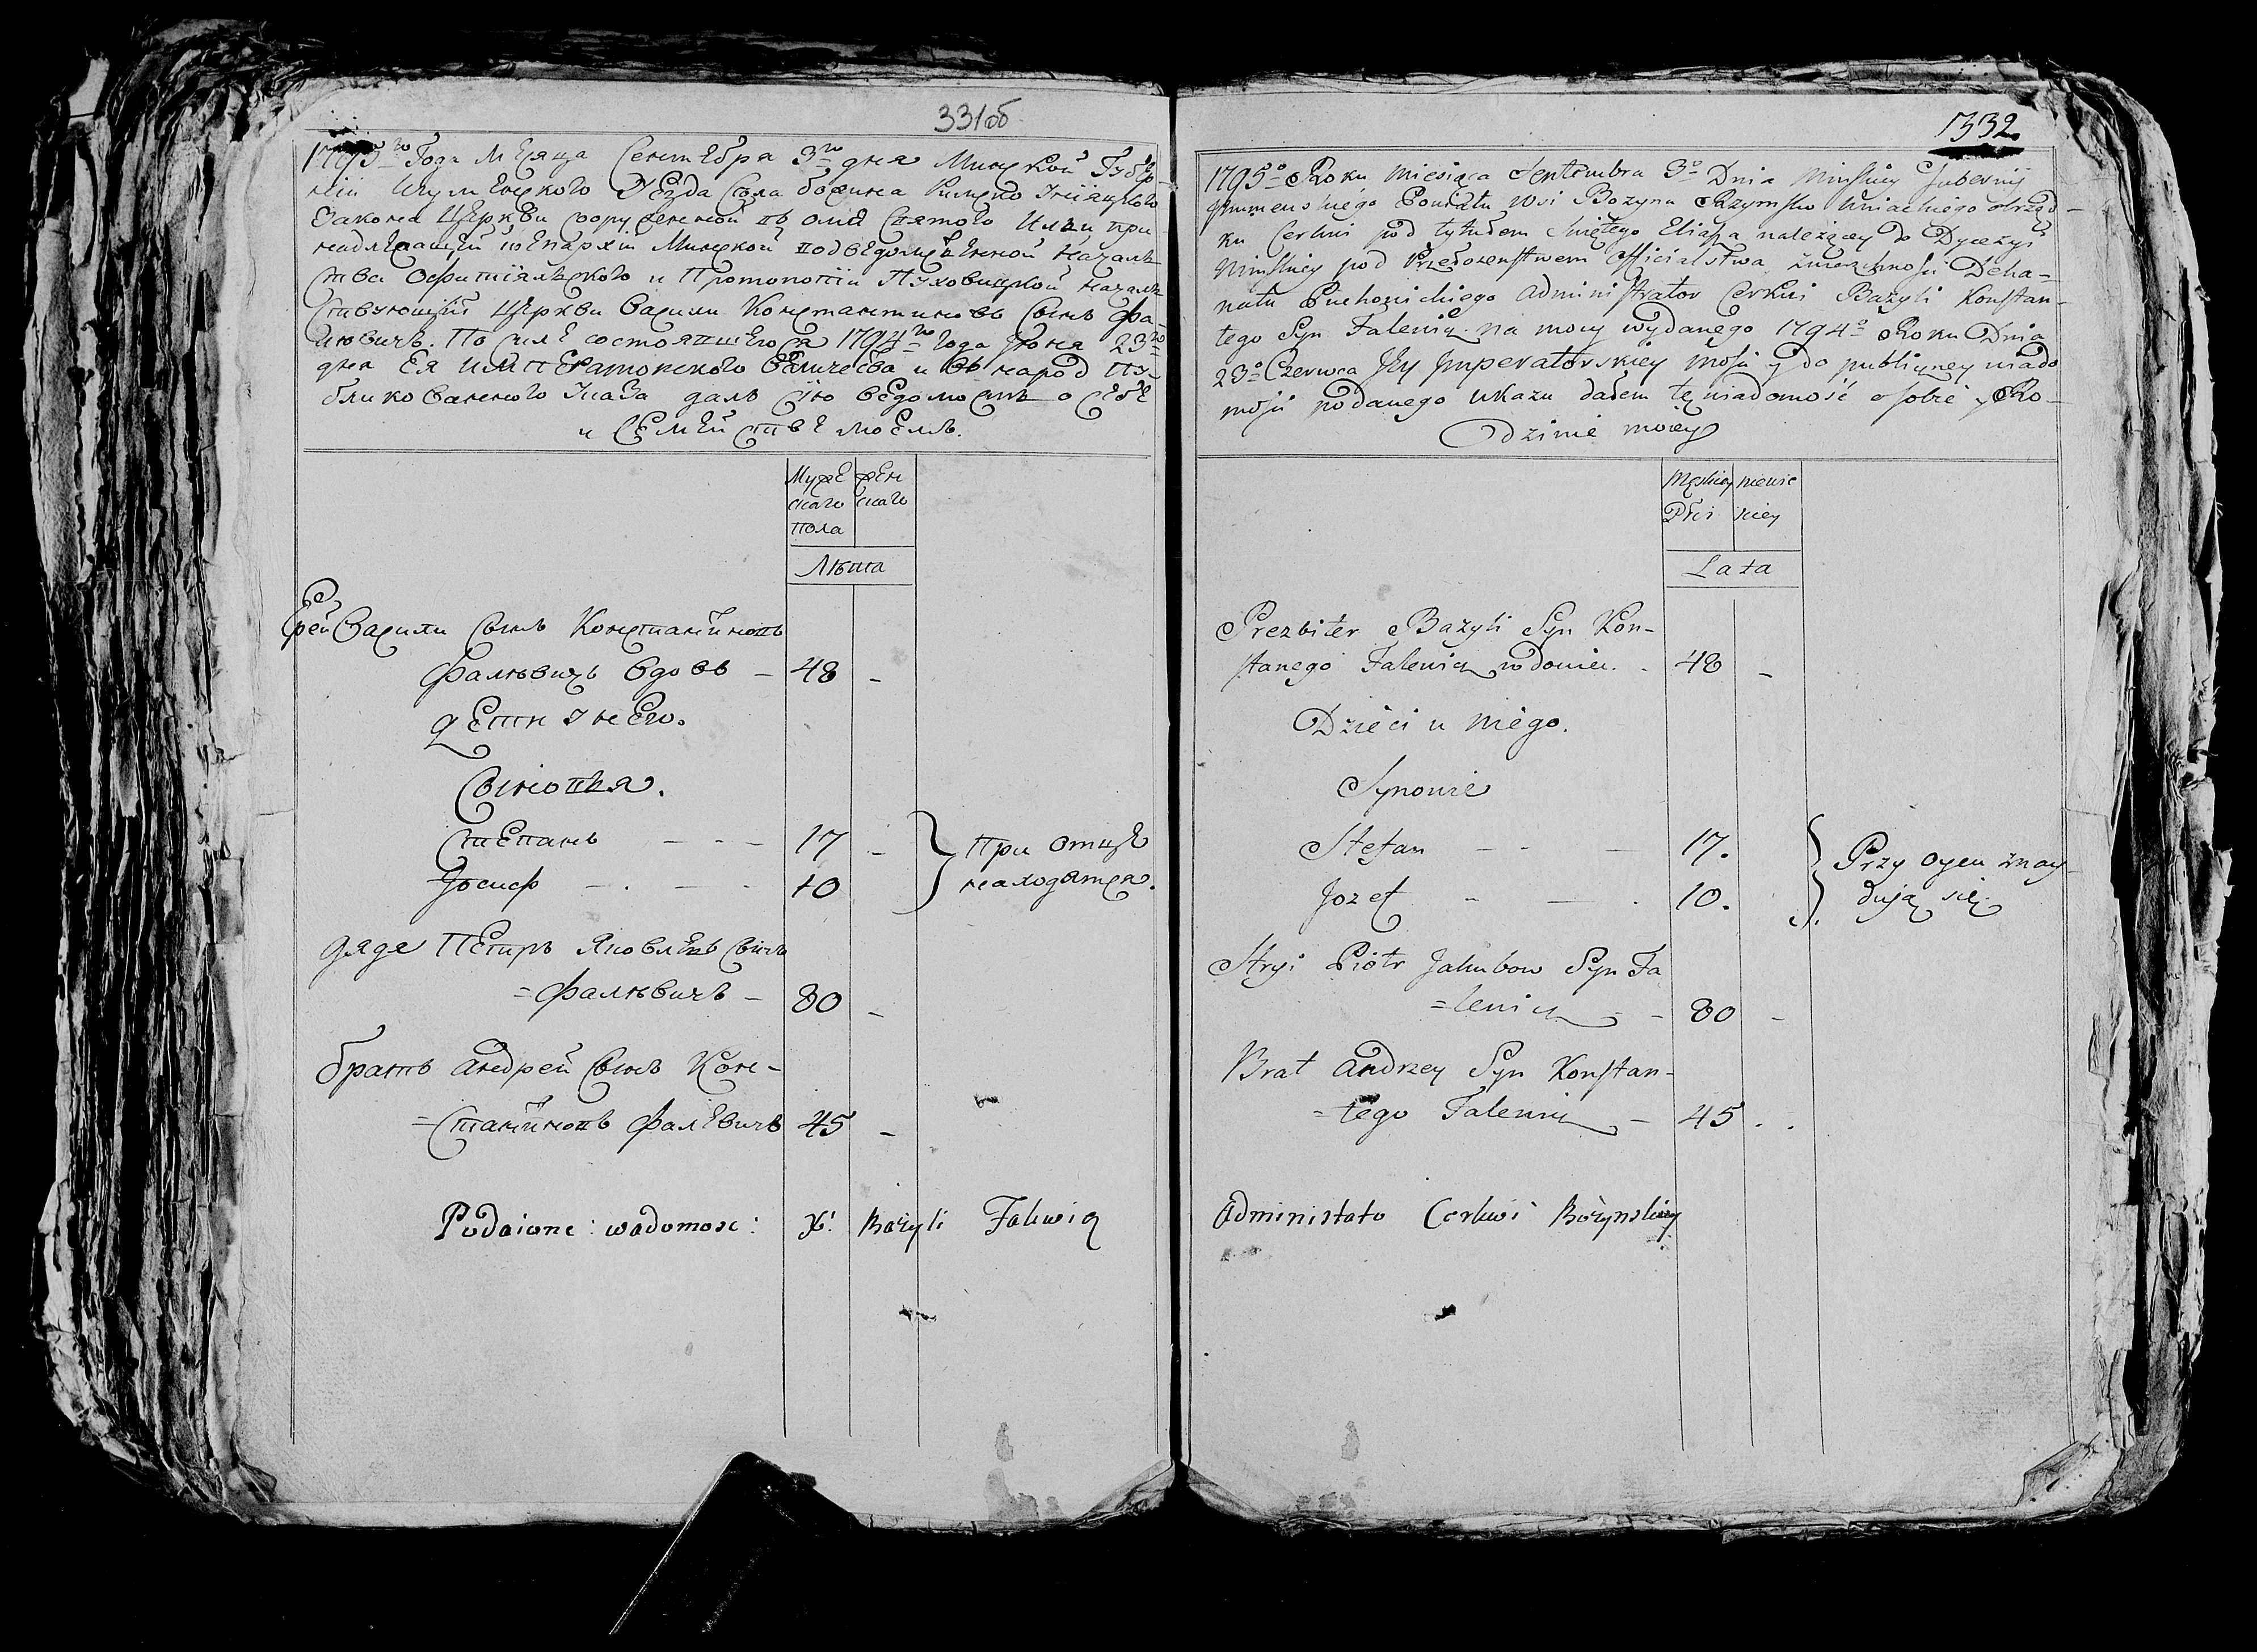 331об
1795го Года Мѣсяца Сентебря 3го дня Минской Губер-
ніи Игуменского Уезда Села Божина Римско Уніяцкого
Закона Церкви сооруженной въ имя Святого Ильи при-
надлежащей къ Епархіи Минской подведомственной Началь
ства Оффиціяльского и Протопопіи Пуховицкой началь
ствующій Церкви Василій Константиновъ Сынъ Фа-
лювичъ. По силе состоявшегося 1794го Года Июня 23го
дня Ея Императорского Величества и въ народ Пу-
бликованного Указа далъ сію ведомость о себе
и Семействе моемъ.
Муже
скаго
пола
жен
скаго
Лѣта
Ерей Василій Сынъ Константиновъ
Фалювичъ вдовъ – 48 –
дети у него.
Сыновья.
Степанъ - - - 17 –
Иосиф - . - . 10
} При отце
находятся.
дядя Петръ Яковлевъ Сынъ
= Фалювичъ – 80 –
братъ Андрей Сынъ Кон-
= стантиновъ Фалевичъ 45 –
Podaione : wadomosc : X: Bazyli Falewicz
1332
1795o Roku Miesiąca Septembra 3o Dnia Minskiey Gubernij
Jhumenskiego Powiatu Wsi Bozyna Rzymsko Uniackiego obrząd-
ku Cerkwi pod tytułem Swiętego Eliasza należącey do Dyecezyi
Minskiey pod Przełożenstwem Officialstwa zwierzchnosci Deka-
natu Puchowickiego Administrator Cerkwi Bazyli Konstan-
tego Syn Falewicz. na mocy wydanego 1794o Roku Dnia
23o Czerwca Jey Jmperatorskiey mosci y do publiczney wiado
mosci podanego ukazu dałem tę wiadomość o sobie y Ro-
dzinie moiey
Męskiey
Płci
niewie
skiey
Lata
Prezbiter Bazyli Syn Kon-
stanego Falewicz wdowiec. - 48 –
Dzieci u niego.
Synowie
Stefan - - — 17.
Jozef - — . 10.
} Przy Oycu znay-
dują się.
Stryi Piotr Jakubow Syn Fa
=lewicz – 80 –
Brat Andrzey Syn Konstan-
=tego Falewicz – 45 . .
Administato Cerkwi Bożynskiey